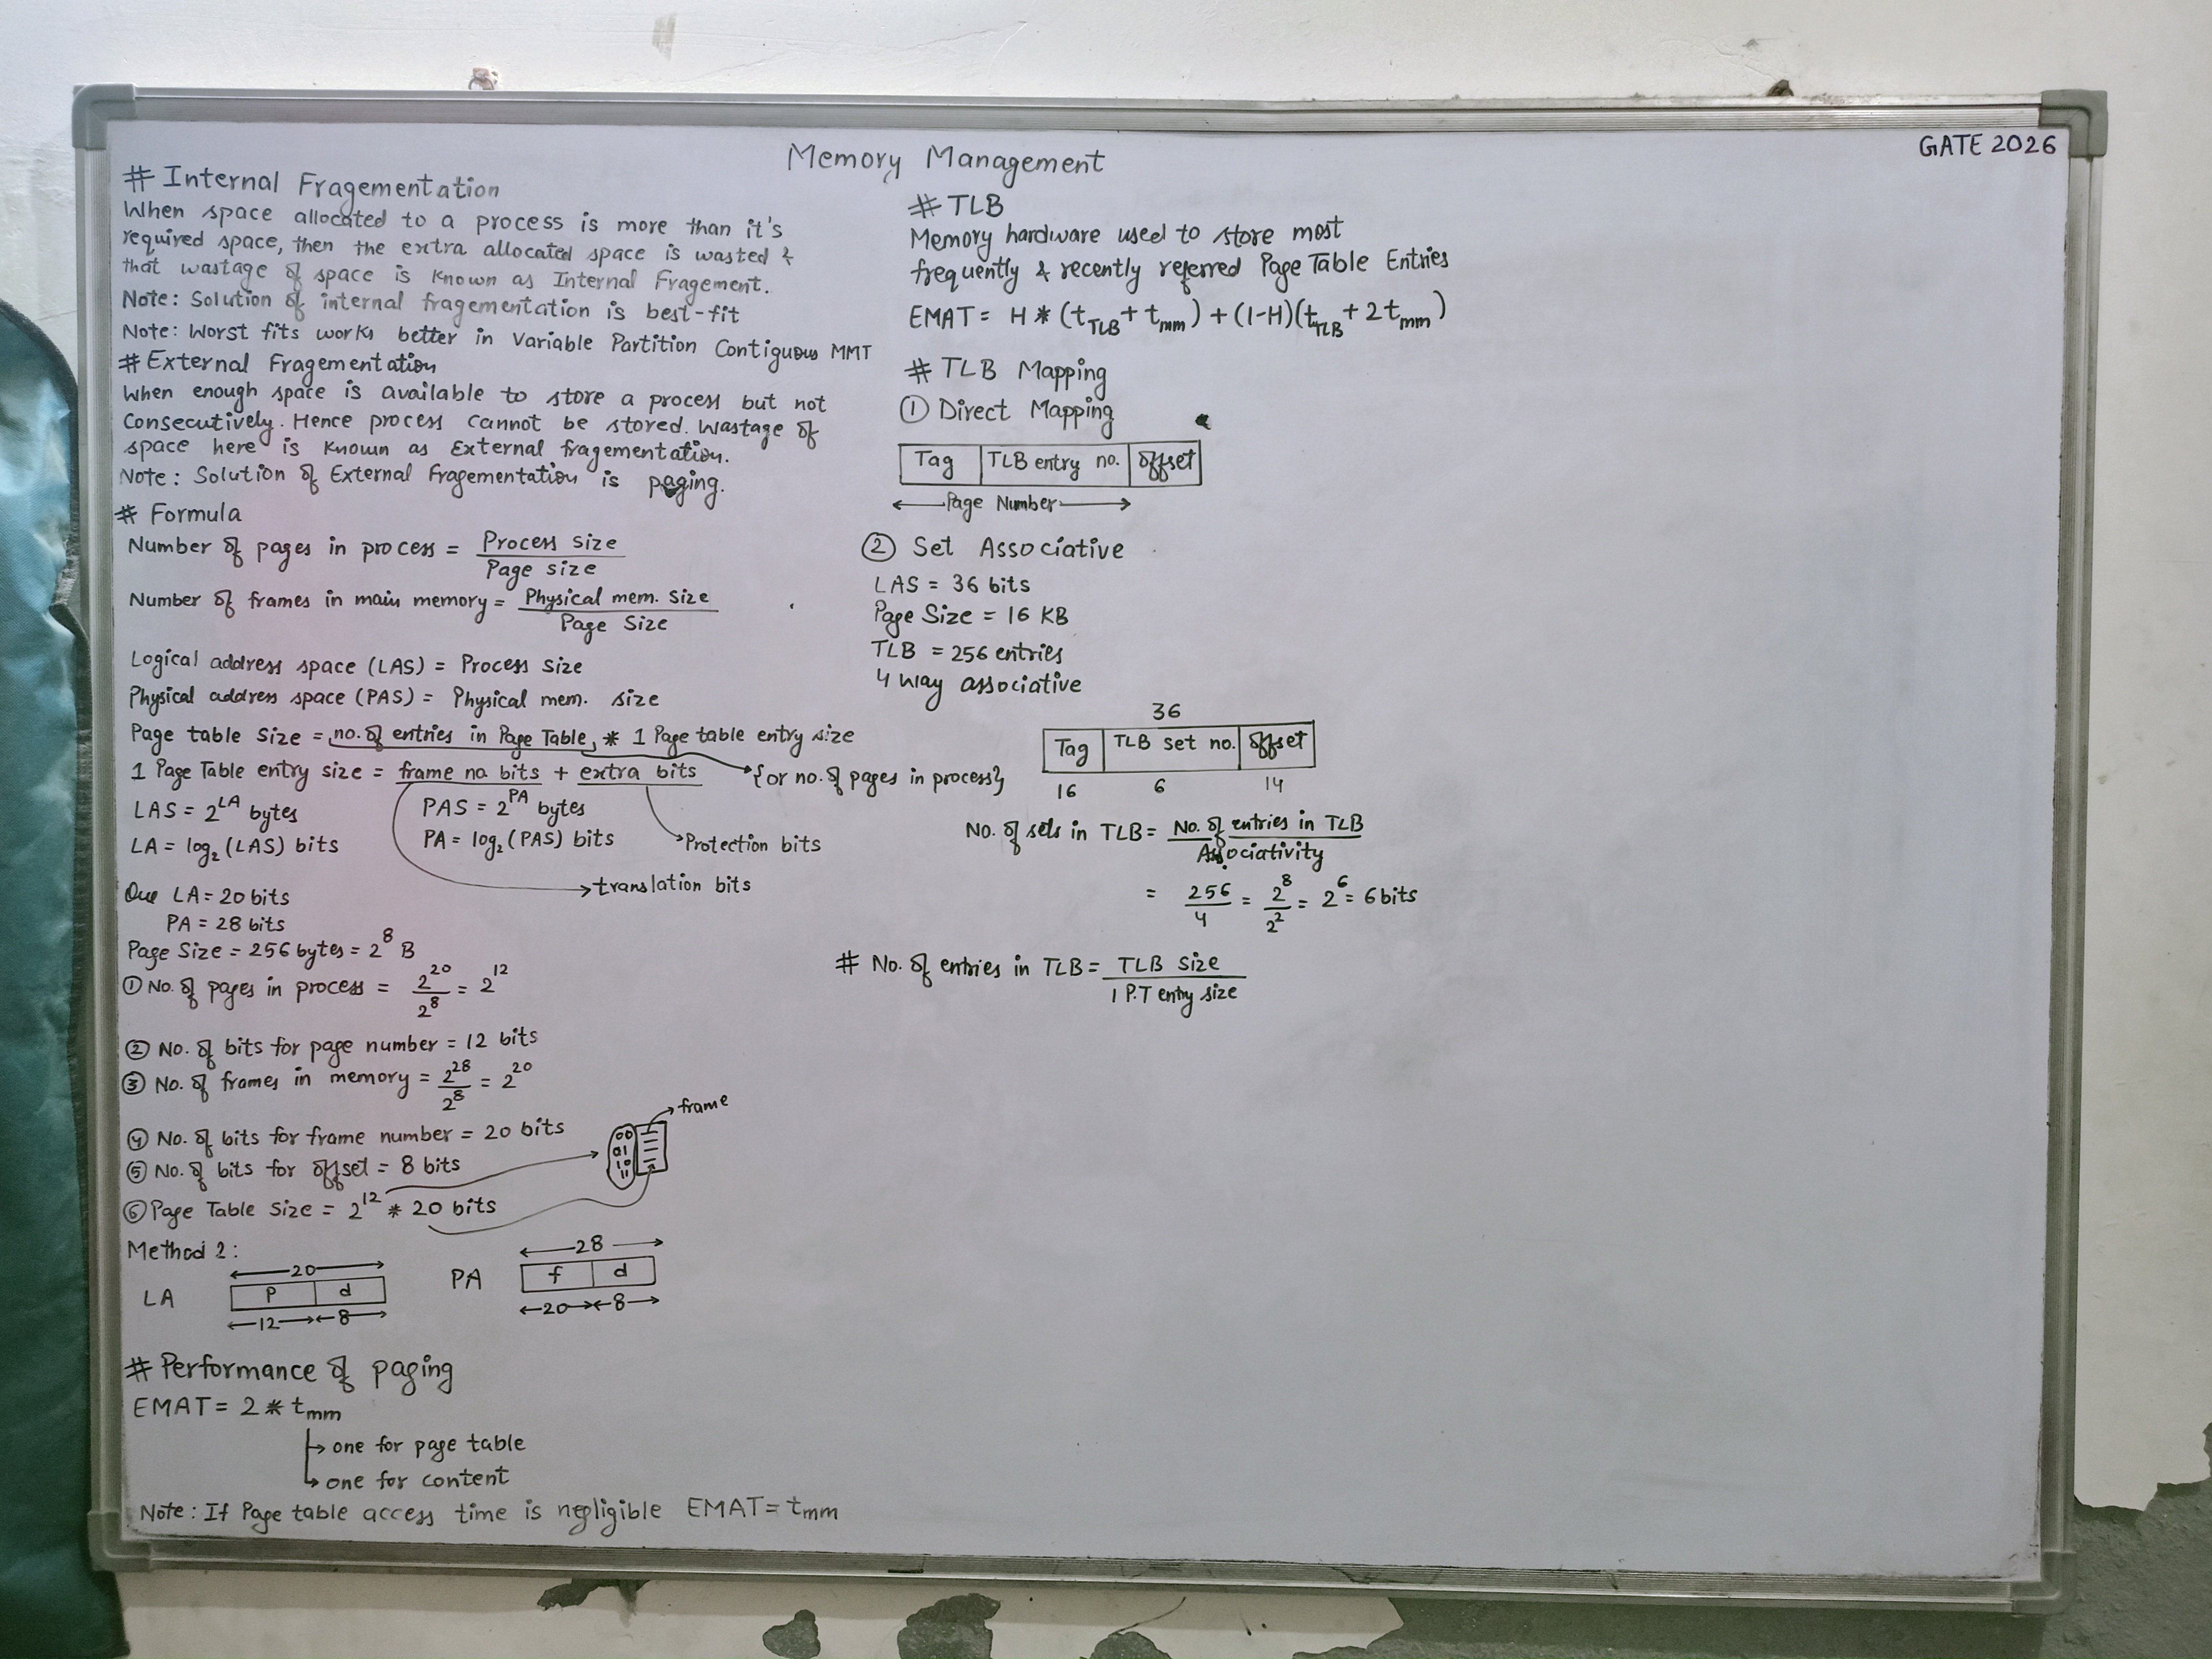 Memory Management
GATE 2026
# Internal Fragementation
When space allocated to a process is more than it's
required space, then the extra allocated space is wasted &
that wastage of space is known as Internal Fragement.
Note: Solution of internal fragementation is best-fit
Note: Worst fits works better in Variable Partition Contiguous MMT
# External Fragementation
When enough space is available to store a process but not
Consecutively. Hence process cannot be stored. Wastage of
space here is known as External fragementation.
Note: Solution of External Fragementation is paging.
# Formula
Number of pages in process = Process size / Page size
Number of frames in main memory = Physical mem. Size / Page Size
Logical address space (LAS) = Process Size
Physical address space (PAS) = Physical mem. size
Page table Size = no. of entries in Page Table * 1 Page table entry size
{or no. of pages in process}
1 Page Table entry size = frame no bits + extra bits
LAS = 2^LA bytes
PAS = 2^PA bytes
LA = log₂ (LAS) bits
PA = log₂ (PAS) bits
Protection bits
translation bits
Que LA = 20 bits
PA = 28 bits
Page Size = 256 bytes = 2^8 B
① No. of pages in process = 2^20 / 2^8 = 2^12
② No. of bits for page number = 12 bits
③ No. of frames in memory = 2^28 / 2^8 = 2^20
④ No. of bits for frame number = 20 bits
⑤ No. of bits for offset = 8 bits
⑥ Page Table Size = 2^12 * 20 bits
frame
00
01
10
11
Method 2:
LA
20
P d
12 8
PA
28
f d
20 8
# Performance of paging
EMAT = 2 * tmm
one for page table
one for content
Note: If Page table access time is negligible EMAT = tmm
# TLB
Memory hardware used to store most
frequently & recently referred Page Table Entries
EMAT = H * (tTLB + tmm) + (1-H)(tTLB + 2tmm)
# TLB Mapping
① Direct Mapping
Tag TLB entry no. offset
Page Number
② Set Associative
LAS = 36 bits
Page Size = 16 KB
TLB = 256 entries
4 way associative
36
Tag TLB set no. offset
16 6 14
No. of sets in TLB = No. of entries in TLB / Associativity
= 256 / 4 = 2^8 / 2^2 = 2^6 = 6 bits
# No. of entries in TLB = TLB size / 1 P.T entry size